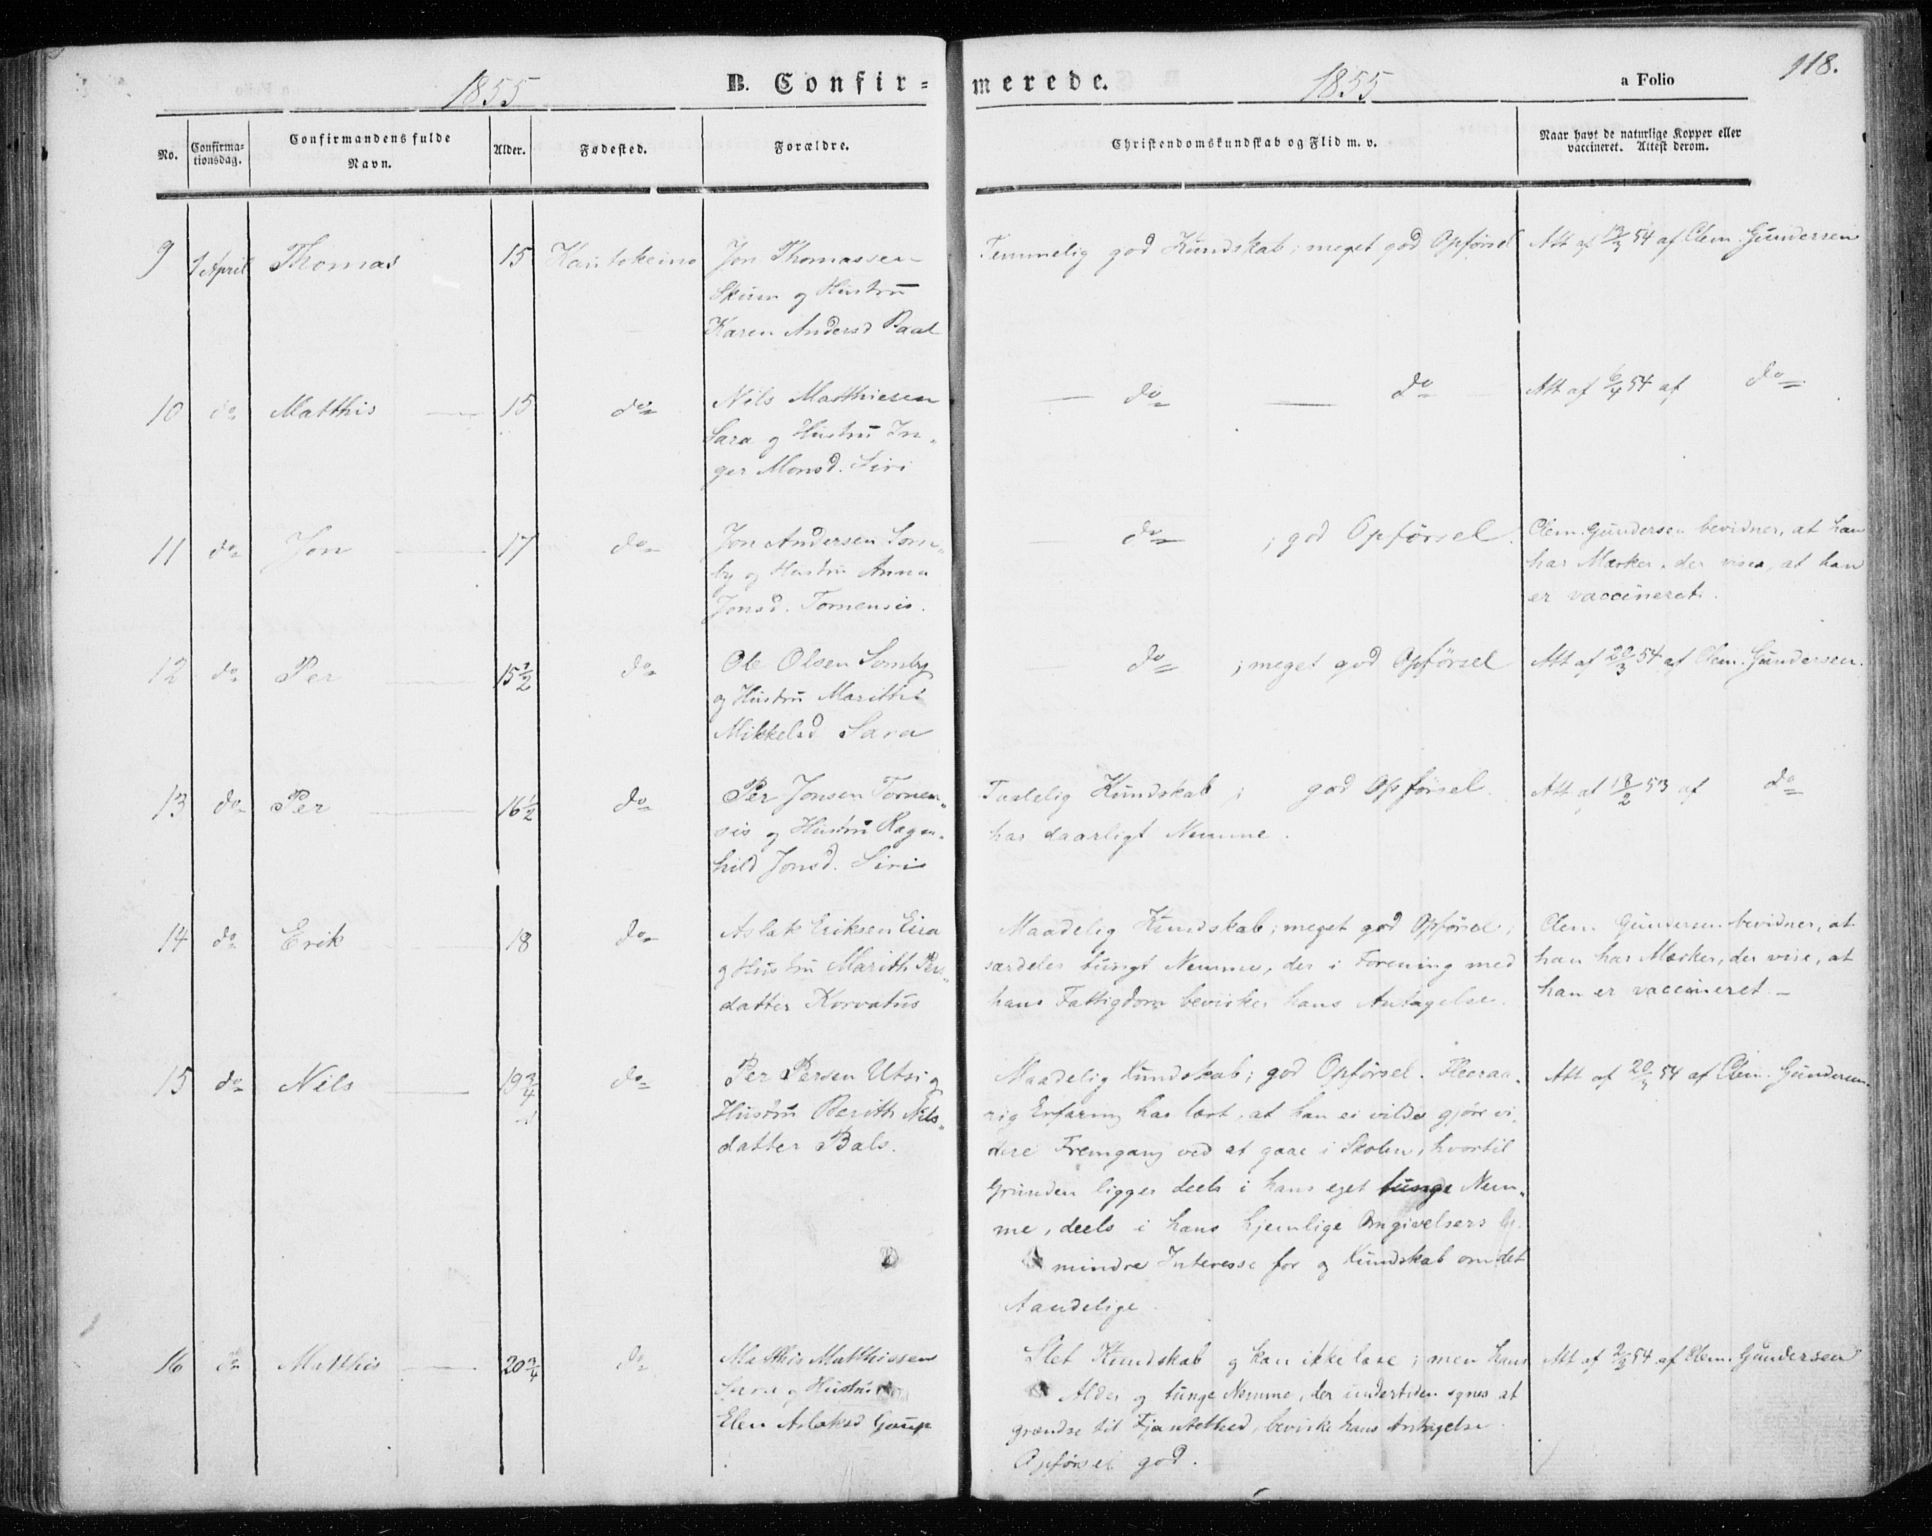 1855 B. Confir-
merede. 1855 a Folio 118.
No. Confirma-tionsdag. Confirmandens fulde Navn. Alder. Fødested. Forældre.
Christendomskundskab og Flid m. v. Naar havt de naturlige Kopper eller vaccineret. Attest derom.
9 1 April Thomas 15 Kautokeino Jon Thomassen
Skum og Hustru
Karen Andersd
Temmelig god Kundskab; meget god Opførsel Att af 54 af Clem. Gundersen
10 do Matthis 15 do Nils Matthiesen
Sara og Hustru In-
ger Monsd. Siri
do do Att af 6/4 54 af do
11 do Jon 17 do Jon Andersen Som-
by og Hustru Anna
Jonsd. Tornensis.
do ; god Opførsel. Clem. Gundersen bevidner, at han
har Mærker, der vise, at han
er vaccineret.
12 do Per 15 1/2 do Ole Olsen Somby
og Hustru Marithe
Mikkelsd Sara
do ; meget god Opførsel Att af 20/3 54 af Clem. Gundersen.
13 do Per 16 1/2 do Per Jonsen Tornen-
sis og Hustru Ragn-
hild Jonsd. Siri
Taalelig Kundskab; god Opførsel. Att af 18/2 53 af do
har daarligt Nemme.
14 do Erik 18 do Aslak Eriksen Eira
og Hustru Marith Pers-
datter Korvatus
Maadelig Kundskab; meget god Opførsel;
særdeles tungt Nemme, der i Forening med
hans Fattigdom bevirker hans Antagelse.
Clem. Gundersen bevidner, at
han har Mærker, der vise, at
han er vaccineret -
15 do Nils 19 3/4 do Per Persen Utsi og
Hustru Berith Nils-
datter Bals.
Maadelig Kundskab; god Opførsel. Fleeraa-
rig Erfaring har lært, at han ei vilde gjøre vi-
dere Fremgang ved at gaae i Skolen, hvortil
Grunden ligger deels i hans eget tunge Nem-
me, deels i hans hjemlige Omgivelsers
mindre Interesse for og Kundskab om det
Aandelige.
Att af 20/3 54 af Clem. Gundersen.
16 do Matthis 20 3/4 do Matthis Matthissen
Sara og Hustru
Elen Aslaksd Gaup
Slet Kundskab og kan ikke læse; men hans
Alder og tunge Nemme, der undertiden synes at
grændse til Fjantethed, bevirke hans Antagelse
Opførsel god.
Att af 54 af Clem. Gundersen